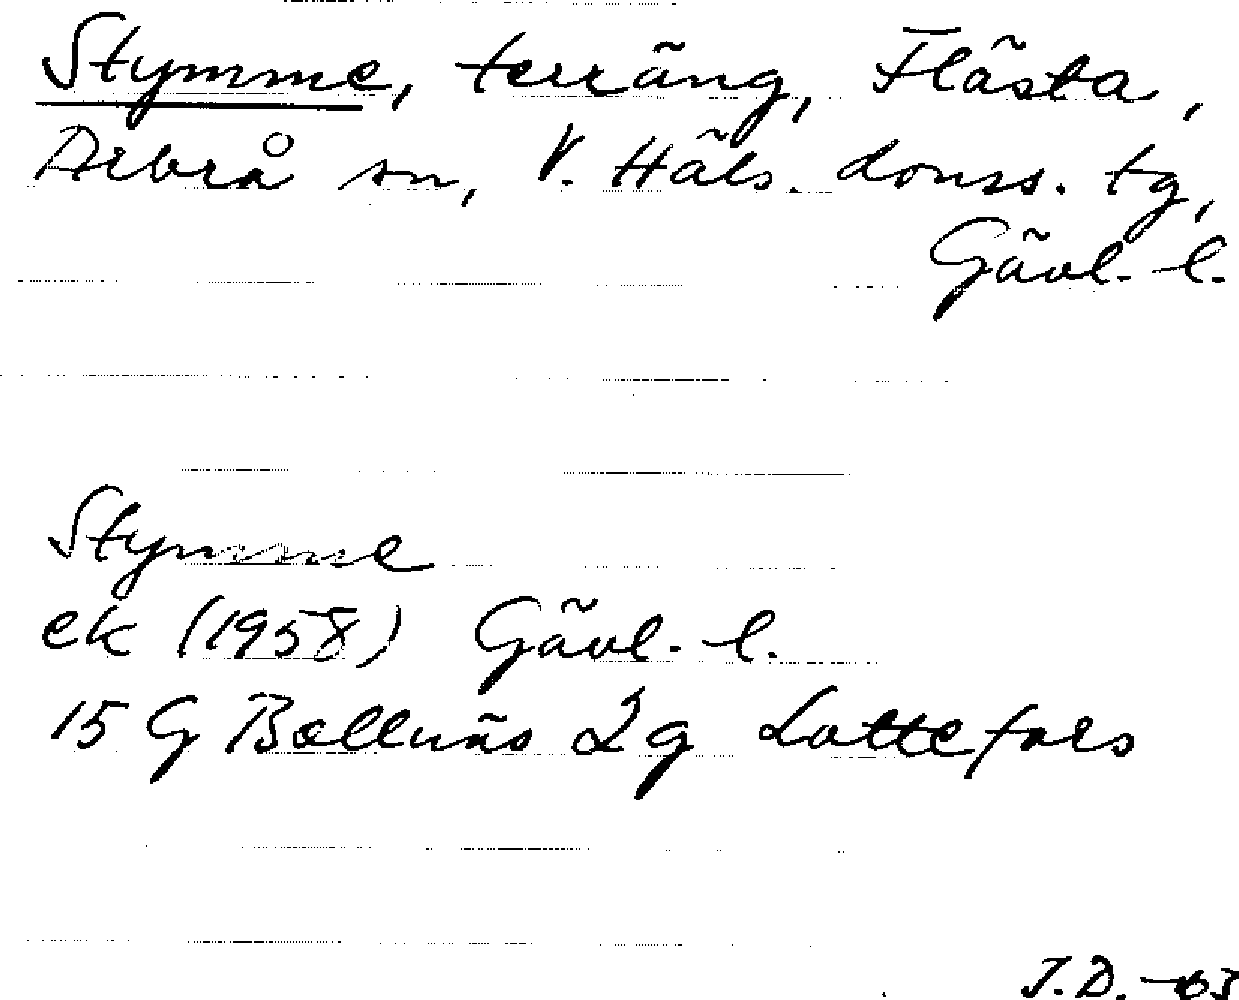 Stymme, terräng, Flästa,
Arbrå sn, V. Häls. domss. tg,
Gävl. l.
Stymme
ek (1958) Gävl. l.
15 G Bollnäs 2 g Lottefors
J.D. -63